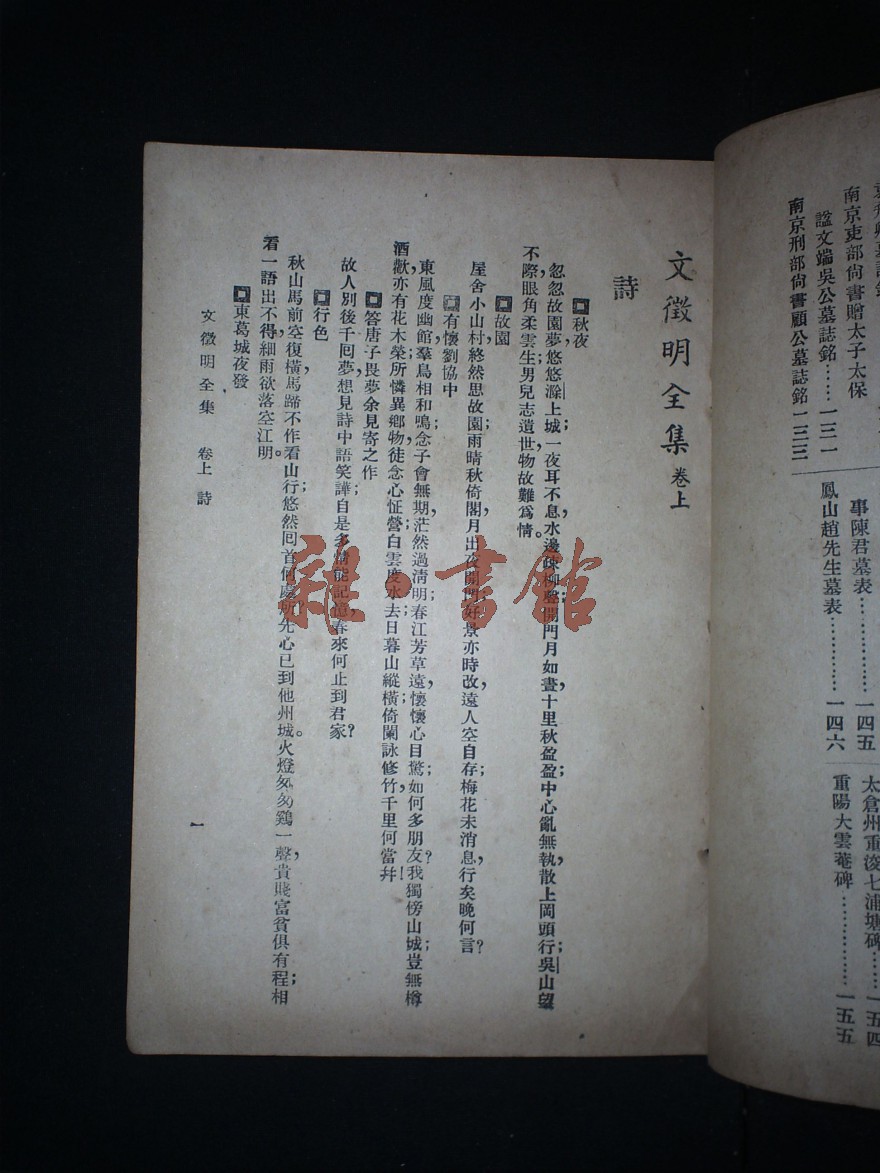 南京吏部尙書贈太子太保
諡文端吳公墓誌銘……一三一
南京刑部尙書顧公墓誌銘一三三
事陳君墓表………………一四五
鳳山趙先生墓表…………一四六
太倉州重浚七浦塘碑……一五四
重陽大雲菴碑……………一五五
文徵明全集 卷上
詩
秋夜
忽忽故園夢,悠悠滁上城;一夜耳不息,水邊疎柳聲;開門月如晝,十里秋盈盈;中心亂無執,散上岡頭行;吳山望
不際,眼角柔雲生;男兒志遺世,物故難爲情。
故園
屋舍小山村,終然思故園;雨晴秋倚閣,月出夜開門;好景亦時改,遠人空自存;梅花未消息,行矣晚何言?
有懷劉協中
東風度幽館,羣鳥相和鳴;念子會無期,茫然過淸明;春江芳草遠,懷懷心目驚;如何多朋友?我獨傍山城;豈無樽
酒歡,亦有花木榮;所憐異鄉物,徒念心怔營;白雲度水去,日暮山縱橫;倚闌詠修竹,千里何當幷!
答唐子畏夢余見寄之作
故人別後千囘夢,想見詩中語笑譁;自是多情能記憶,春來何止到君家?
行色
秋山馬前空復橫,馬蹄不作看山行;悠然囘首何處所?先心已到他州城。火燈匆匆鷄一聲,貴賤富貧俱有程;相
看一語出不得,細雨欲落空江明。
東葛城夜發
文徵明全集 卷上 詩
一
雜·書館